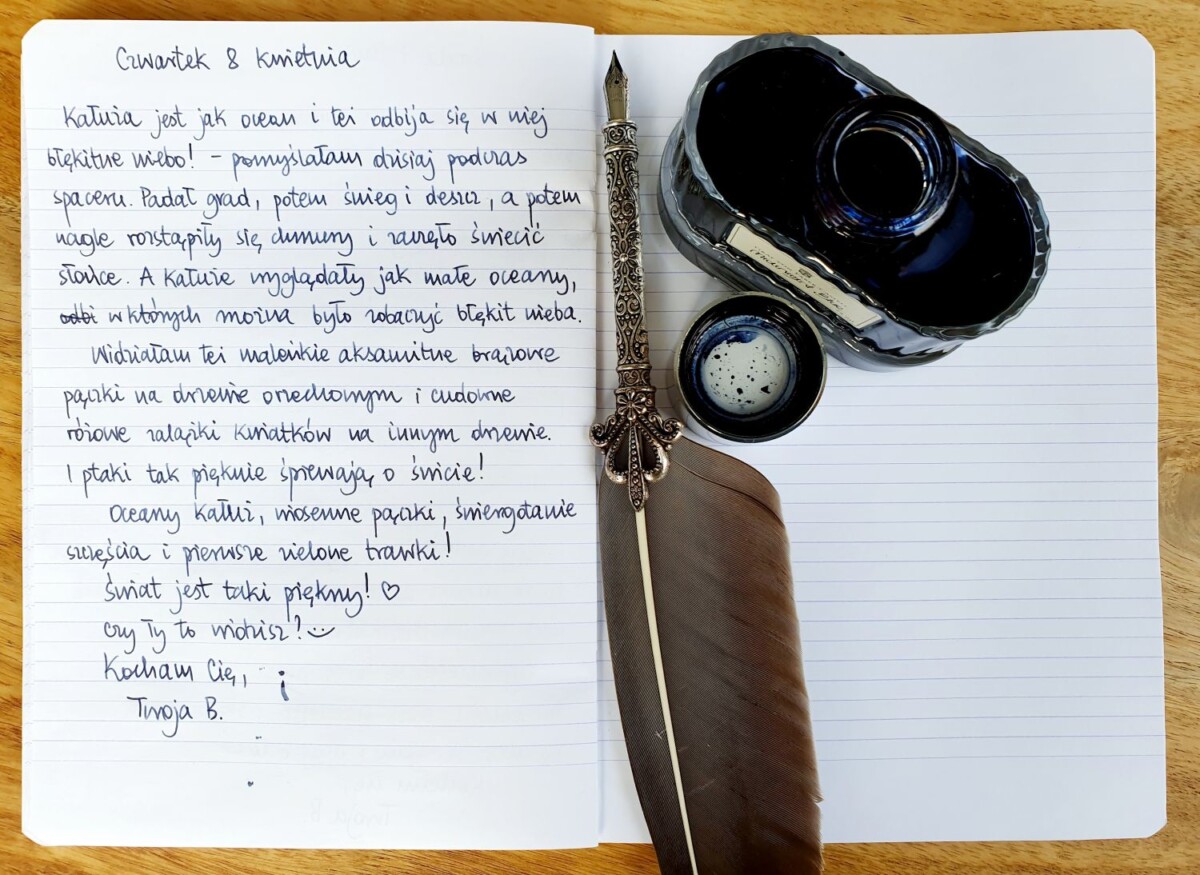 Czwartek 8 kwietnia
Kałuża jest jak ocean i też odbija się w niej
błękitne niebo! - pomyślałam dzisiaj podczas
spaceru. Padał grad, potem śnieg i deszcz, a potem
nagle rozstąpiły się chmury i zaczęło świecić
słońce. A kałuże wyglądały jak małe oceany,
odbi w których można było zobaczyć błękit nieba.
Widziałam też maleńkie aksamitne brązowe
pączki na drzewie orzechowym i cudowne
różowe zalążki kwiatków na innym drzewie.
I ptaki tak pięknie śpiewają o świcie!
Oceany kałuż, wiosenne pączki, świergotanie
szczęścia i pierwsze zielone trawki!
Świat jest taki piękny! ♡
Czy Ty to widzisz? :)
Kocham Cię,
Twoja B.